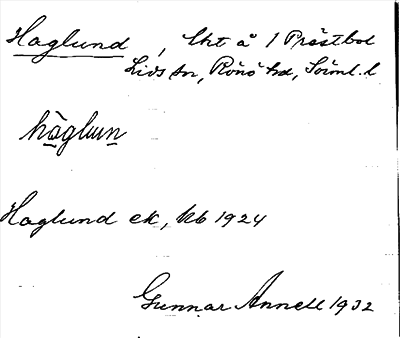 Haglund, lht å 1 Prästbol
Lids sn, Rönö hd, Söml. l
hàglun
Haglund ek, kb 1924
Gunnar Annell 1932